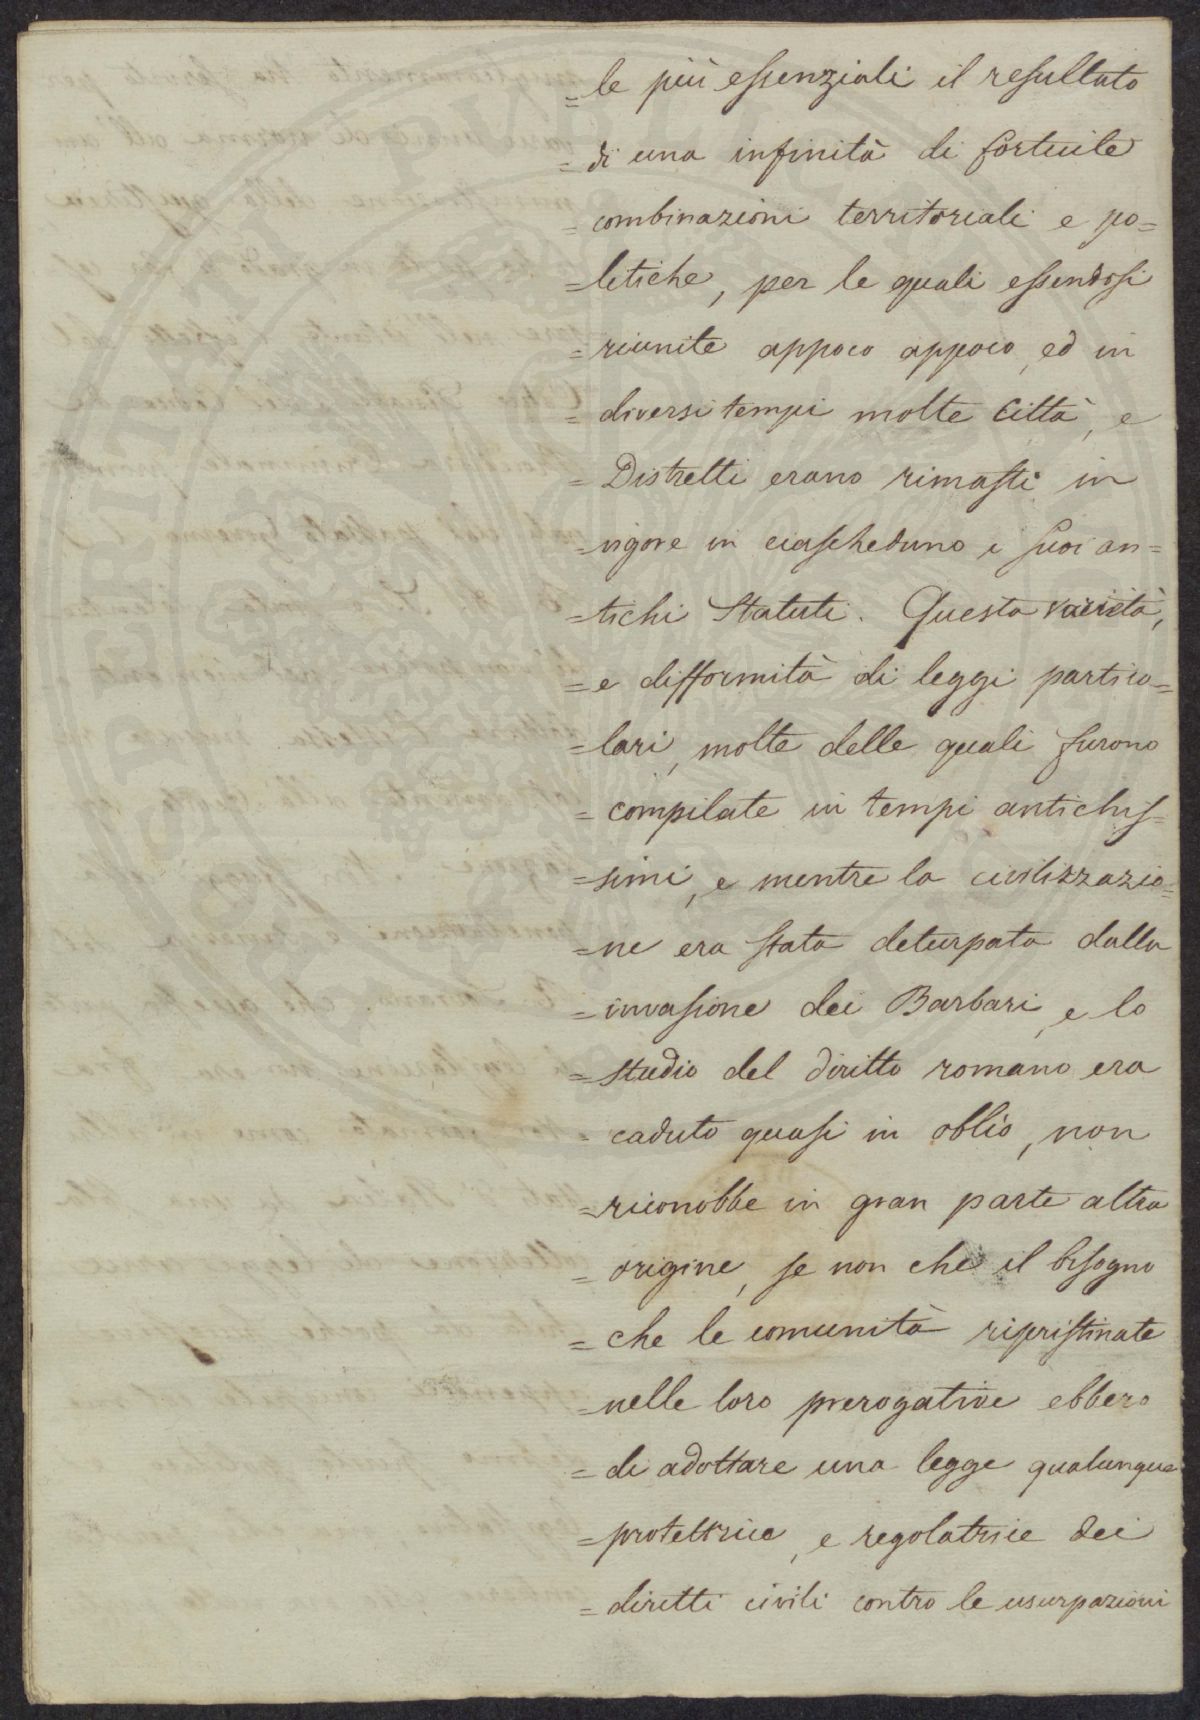 = le più essenziali il resultato
= di una infinità di fortuite
= combinazioni territoriali e po=
= litiche, per le quali essendosi
= riunite appoco appoco, ed in
= diversi tempi molte Città, e
= Distretti erano rimasti in
= vigore in ciascheduno i suoi an=
= tichi Statuti. Questa varietà,
= e difformità di leggi partico=
= lari, molte delle quali furono
= compilate in tempi antichis=
= simi, e mentre la civilizzazio=
= ne era stata deturpata dalla
= invasione dei Barbari, e lo
= studio del diritto romano era
= caduto quasi in oblio, non
= riconobbe in gran parte altra
= origine, se non che il bisogno
= che le comunità ripristinate
= nelle loro prerogative ebbero
= di adottare una legge qualunque
= protettrice, e regolatrice dei
= diritti civili contro le usurpazioni